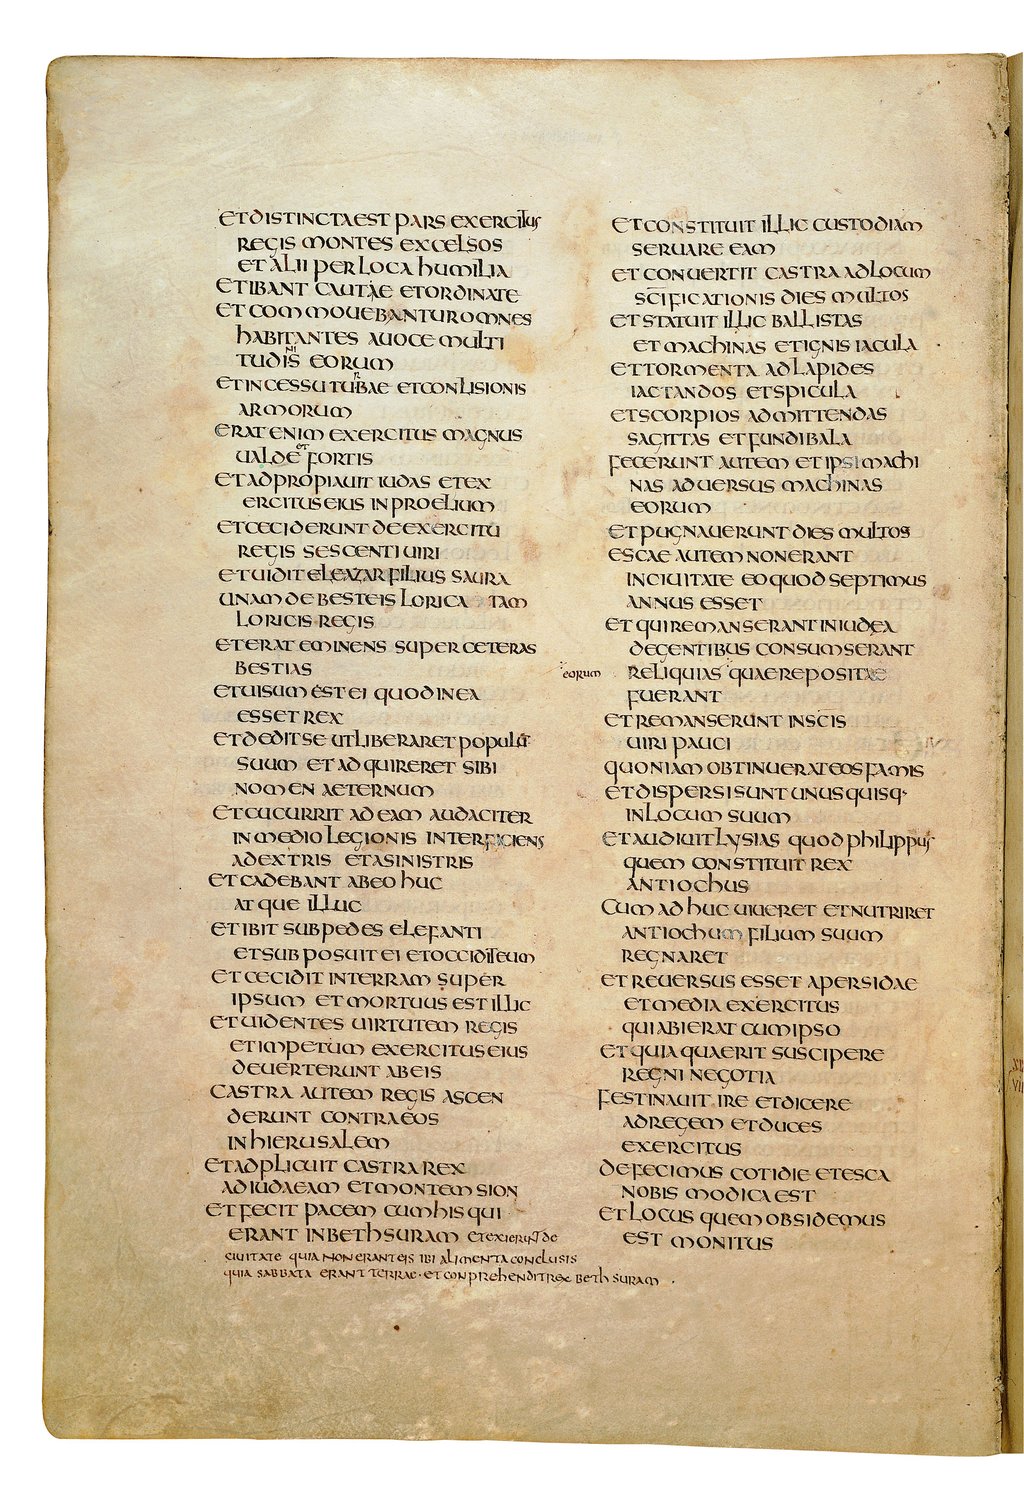 ET DISTINCTA EST PARS EXERCITUS
REGIS MONTES EXCELSOS
ET ALII PER LOCA HUMILIA
ET IBANT CAUTAE ET ORDINATE
ET COMMOUEBANTUR OMNES
HABITANTES A UOCE MULTI
TUDINIS EORUM
ET INCESSU TURBAE ET CONLISIONIS
ARMORUM
ERAT ENIM EXERCITUS MAGNUS
UALDE ET FORTIS
ET ADPROPIAUIT IUDAS ET EX
ERCITUS EIUS IN PROELIUM
ET CECIDERUNT DE EXERCITU
REGIS SESCENTI UIRI
ET UIDIT ELEAZAR FILIUS SAURA
UNAM DE BESTEIS LORICATAM
LORICIS REGIS
ET ERAT EMINENS SUPER CETERAS
BESTIAS
ET UISUM EST EI QUOD IN EA
ESSET REX
ET DEDIT SE UT LIBERARET POPULU
SUUM ET ADQUIRERET SIBI
NOMEN AETERNUM
ET CUCURRIT AD EAM AUDACITER
IN MEDIO LEGIONIS INTERFICIENS
A DEXTRIS ET A SINISTRIS
ET CADEBANT AB EO HUC
ATQUE ILLUC
ET IBIT SUB PEDES ELEFANTI
ET SUBPOSUIT EI ET OCCIDIT EUM
ET CECIDIT IN TERRAM SUPER
IPSUM ET MORTUUS EST ILLIC
ET UIDENTES UIRTUTEM REGIS
ET IMPETUM EXERCITUS EIUS
DEUERTERUNT AB EIS
CASTRA AUTEM REGIS ASCEN
DERUNT CONTRA EOS
IN HIERUSALEM
ET ADPLICUIT CASTRA REX
AD IUDAEAM ET MONTEM SION
ET FECIT PACEM CUM HIS QUI
ERANT IN BETHSURAM ET EXIERUNT DE
CIUITATE QUIA NON ERANT EIS IBI ALIMENTA CONCLUSIS
QUIA SABBATA ERANT TERRAE · ET CONPREHENDIT REX BETHSURAM
ET CONSTITUIT ILLIC CUSTODIAM
SERUARE EAM
ET CONUERTIT CASTRA AD LOCUM
SCIFICATIONIS DIES MULTOS
ET STATUIT ILLIC BALLISTAS
ET MACHINAS ET IGNIS IACULA
ET TORMENTA AD LAPIDES
IACTANDOS ET SPICULA
ET SCORPIOS AD MITTENDAS
SAGITTAS ET FUNDIBALA
FECERUNT AUTEM ET IPSI MACHI
NAS ADUERSUS MACHINAS
EORUM
ET PUGNAUERUNT DIES MULTOS
ESCAE AUTEM NON ERANT
IN CIUITATE EO QUOD SEPTIMUS
ANNUS ESSET
ET QUI REMANSERANT IN IUDEA
DE GENTIBUS CONSUMSERANT
EORUM RELIQUIAS QUAE REPOSITAE
FUERANT
ET REMANSERUNT IN SCIS
UIRI PAUCI
QUONIAM OBTINUERAT EOS FAMIS
ET DISPERSI SUNT UNUSQUISQ·
IN LOCUM SUUM
ET AUDIUIT LYSIAS QUOD PHILIPPUS
QUEM CONSTITUIT REX
ANTIOCHUS
CUM ADHUC UIUERET ET NUTRIRET
ANTIOCHUM FILIUM SUUM
REGNARET
ET REUERSUS ESSET A PERSIDAE
ET MEDIA EXERCITUS
QUI ABIERAT CUM IPSO
ET QUIA QUAERIT SUSCIPERE
REGNI NEGOTIA
FESTINAUIT IRE ET DICERE
AD REGEM ET DUCES
EXERCITUS
DEFECIMUS COTIDIE ET ESCA
NOBIS MODICA EST
ET LOCUS QUEM OBSIDEMUS
EST MONITUS